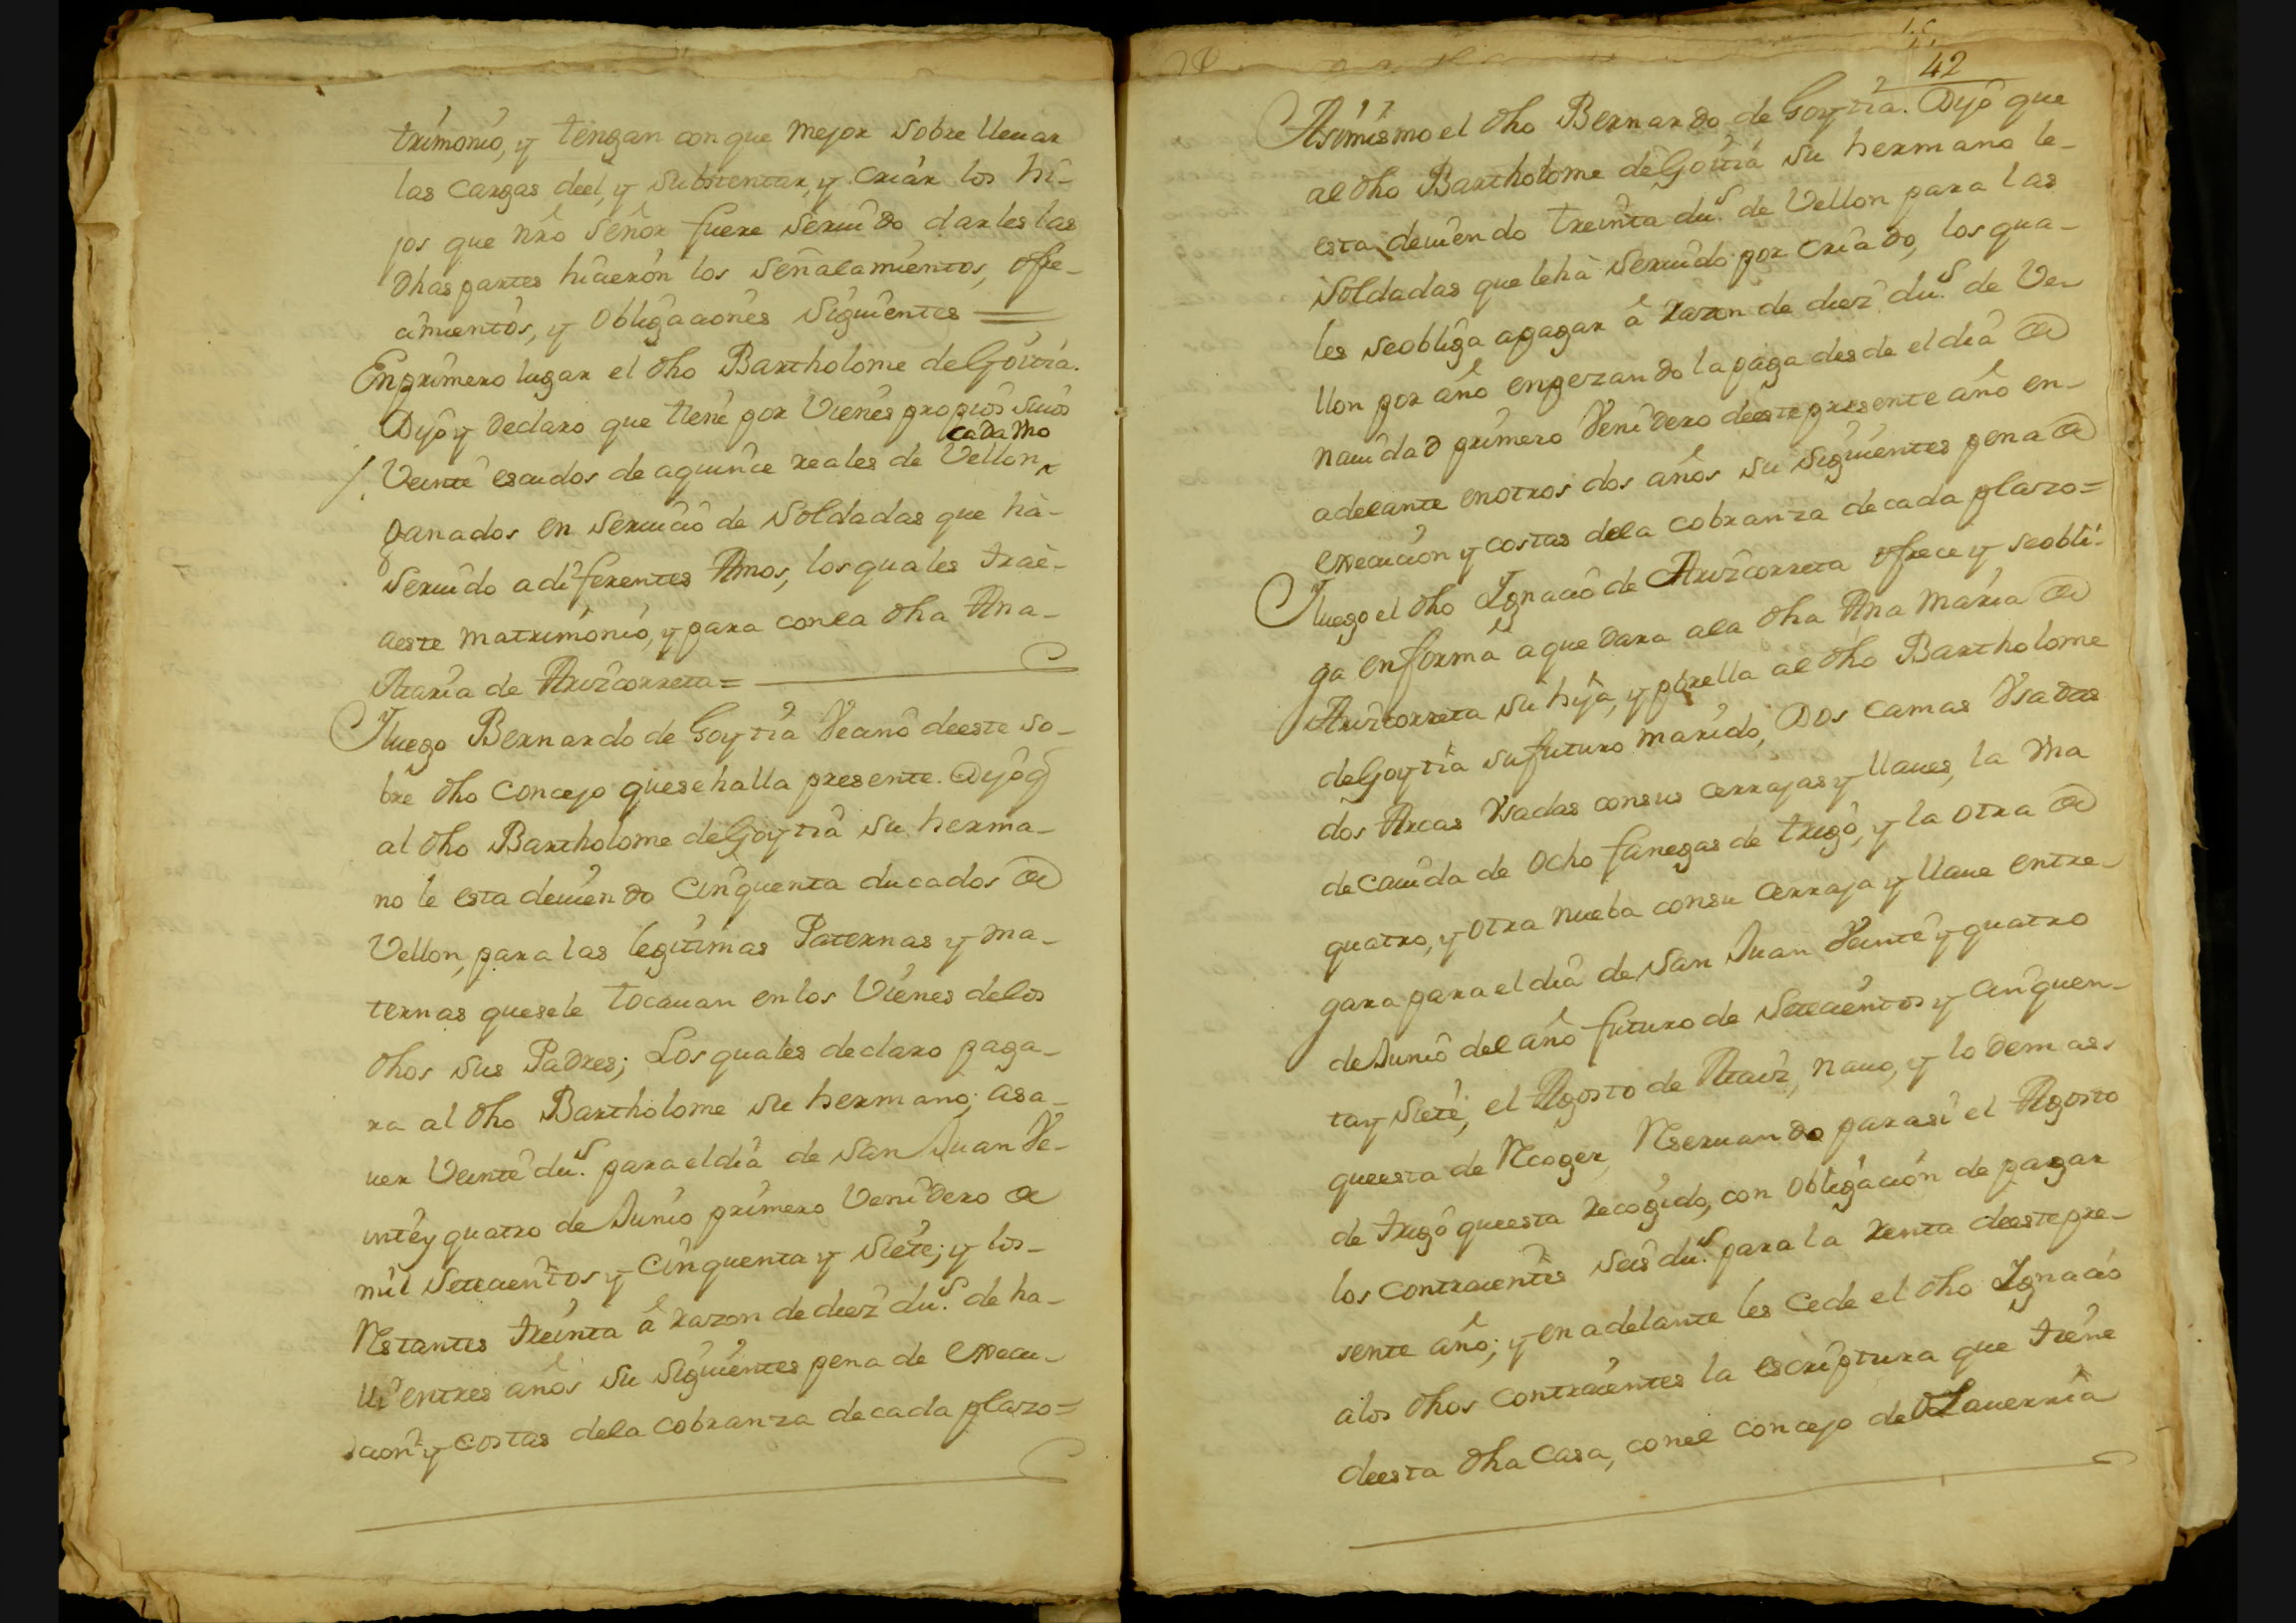 trimonio, y tengan con que mejor sobre lleuar
las cargas deel, y substentar, y criar los hi-
jos que nr̃o Señor fuere seruido darles las
dhas partes hicieron los señalamientos, ofre-
cimientos, y obligaciones siguientes
En primero lugar el dho Bartholome de Goitia.
Dijo y declaro que tiene por vienes propios suios
cada Uno
Veinte escudos de a quince reales de Vellon
ganados en seruicio de soldadas que hà-
seruido a diferentes Amos, los quales traè-
a este matrimonio, y para con la dha Ana-
Maria de Aruicorreta=
Y luego Bernardo de Goytia Vecino de este so-
bre dho Concejo que se halla presente. Dijo q̃
al dho Bartholome de Goytia su herma-
no le esta deuiendo cinquenta ducados de
Vellon, para las legitimas Paternas y ma-
ternas que se le tocauan en los Vienes de los
dhos sus Padres; Los quales declaro paga-
ra al dho Bartholome su hermano; asa-
uer Veinte dus. para el dia de San Juan Ve-
inte y quatro de Junio primero Venidero de
mil Setecientos y cinquenta y siete; y los-
Restantes treinta â razon de diez dus. de ha-
lli en tres años su siguientes pena de execu-
cion y costas de la cobranza de cada plazo=
42
Asimismo el dho Bernardo de Goytia. Dijo que
al dho Bartholome de Goitia su hermano le-
esta deuiendo treinta dus. de Vellon para las
soldadas que le hà seruido por criado, los qua-
les se obliga apagar â razon de diez dus. de Ve-
llon por año enpezando la paga desde el dia de
nauidad primero Venidero de este presente año en-
adelante en otros dos años su siguientes pena de
execucion y costas de la cobranza de cada plazo=
Y luego el dho Ignacio de Aruicorreta ofrece y se obli-
ga en forma a que dara a la dha Ana Maria de
Aruicorreta su hija, y por ella al dho Bartholome
de Goytia su futuro marido, Dos camas Vsadas
dos Arcas Vsadas con sus cerrajas y llaues, la Una
de cauida de ocho fanegas de trigo, y la otra de
quatro, y otra nueba con su cerraja y llaue entre-
gara para el dia de San Juan Veinte y quatro
de Junio del año futuro de Setecientos y cinquen-
ta y siete; el Agosto de Maiz, nauo, y lo demas.
que esta de Recoger, Reseruando para si el Agosto
de trigo que esta recogido, con obligacion de pagar
los contraientes seis dus. para la renta de este pre-
sente año; y en adelante les cede el dho Ignacio
a los dhos contraientes la escriptura que tiene
de esta dha Casa, con el concejo de Olauerria